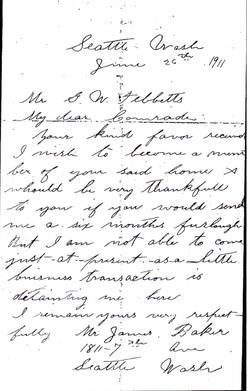 Seattle Wash
June 26th 1911
Mr G. W. Tibbetts
My dear Comrade
Your kind favor receivd
I wish to become a mem
ber of your said home &
whould be very thankfull
to you if you would send
me a six months furlough
But I am not able to come
just-at-present-as a little
buisness transaction is
detaining me here
I remain yours very respect-
fully Mr James Baker
1811-7th Ave
Seattle Wash